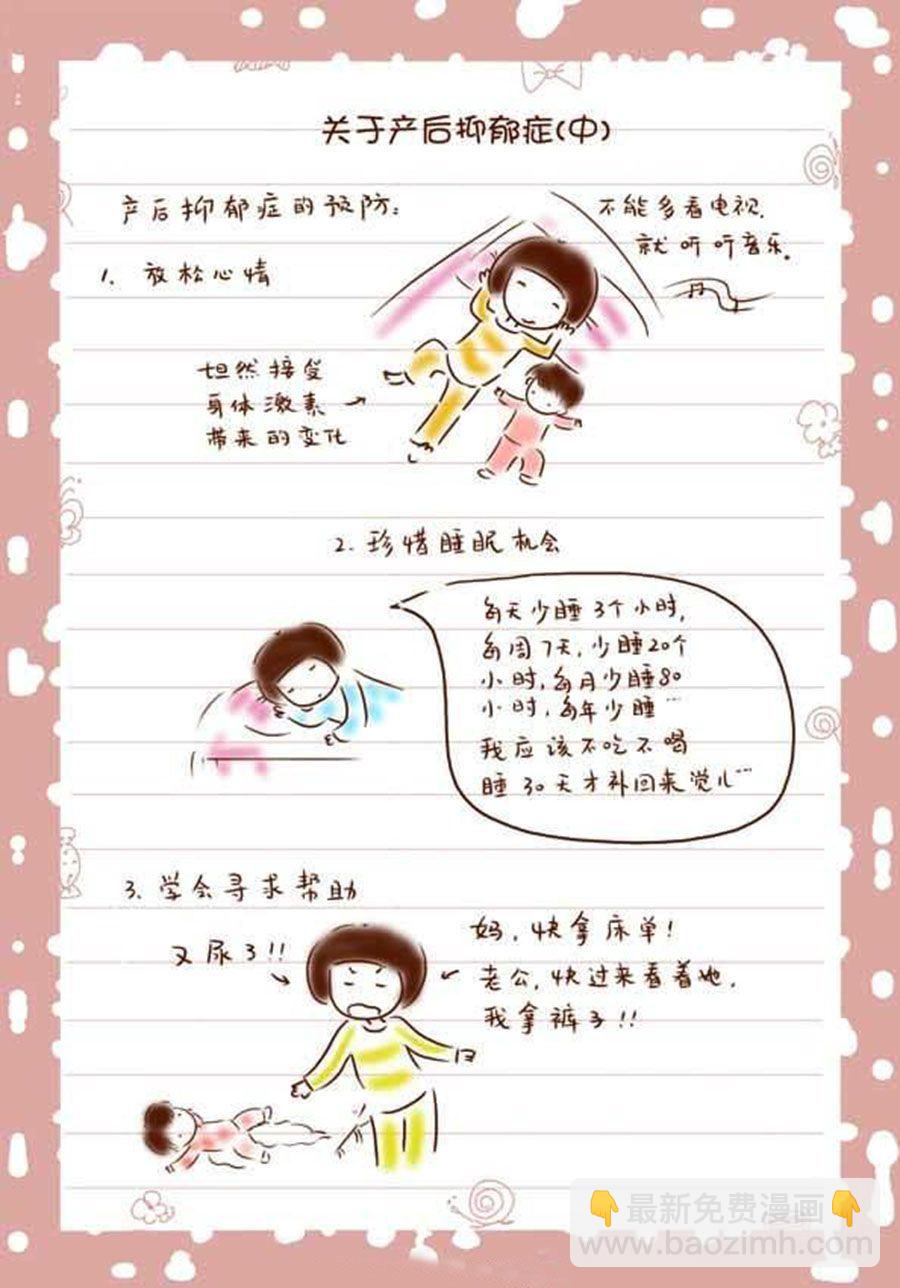 关于产后抑郁症(中)
产后抑郁症的预防:
不能多看电视,
就听听音乐。
1. 放松心情
坦然接受
身体激素
带来的变化
2. 珍惜睡眠机会
每天少睡3个小时,
每周7天,少睡20个
小时,每月少睡80
小时,每年少睡…
我应该不吃不喝
睡30天才补回来觉儿…
3. 学会寻求帮助
又尿了!!
妈,快拿床单!
老公,快过来看着她,
我拿裤子!!
👇最新免费漫画👇
www.baozimh.com